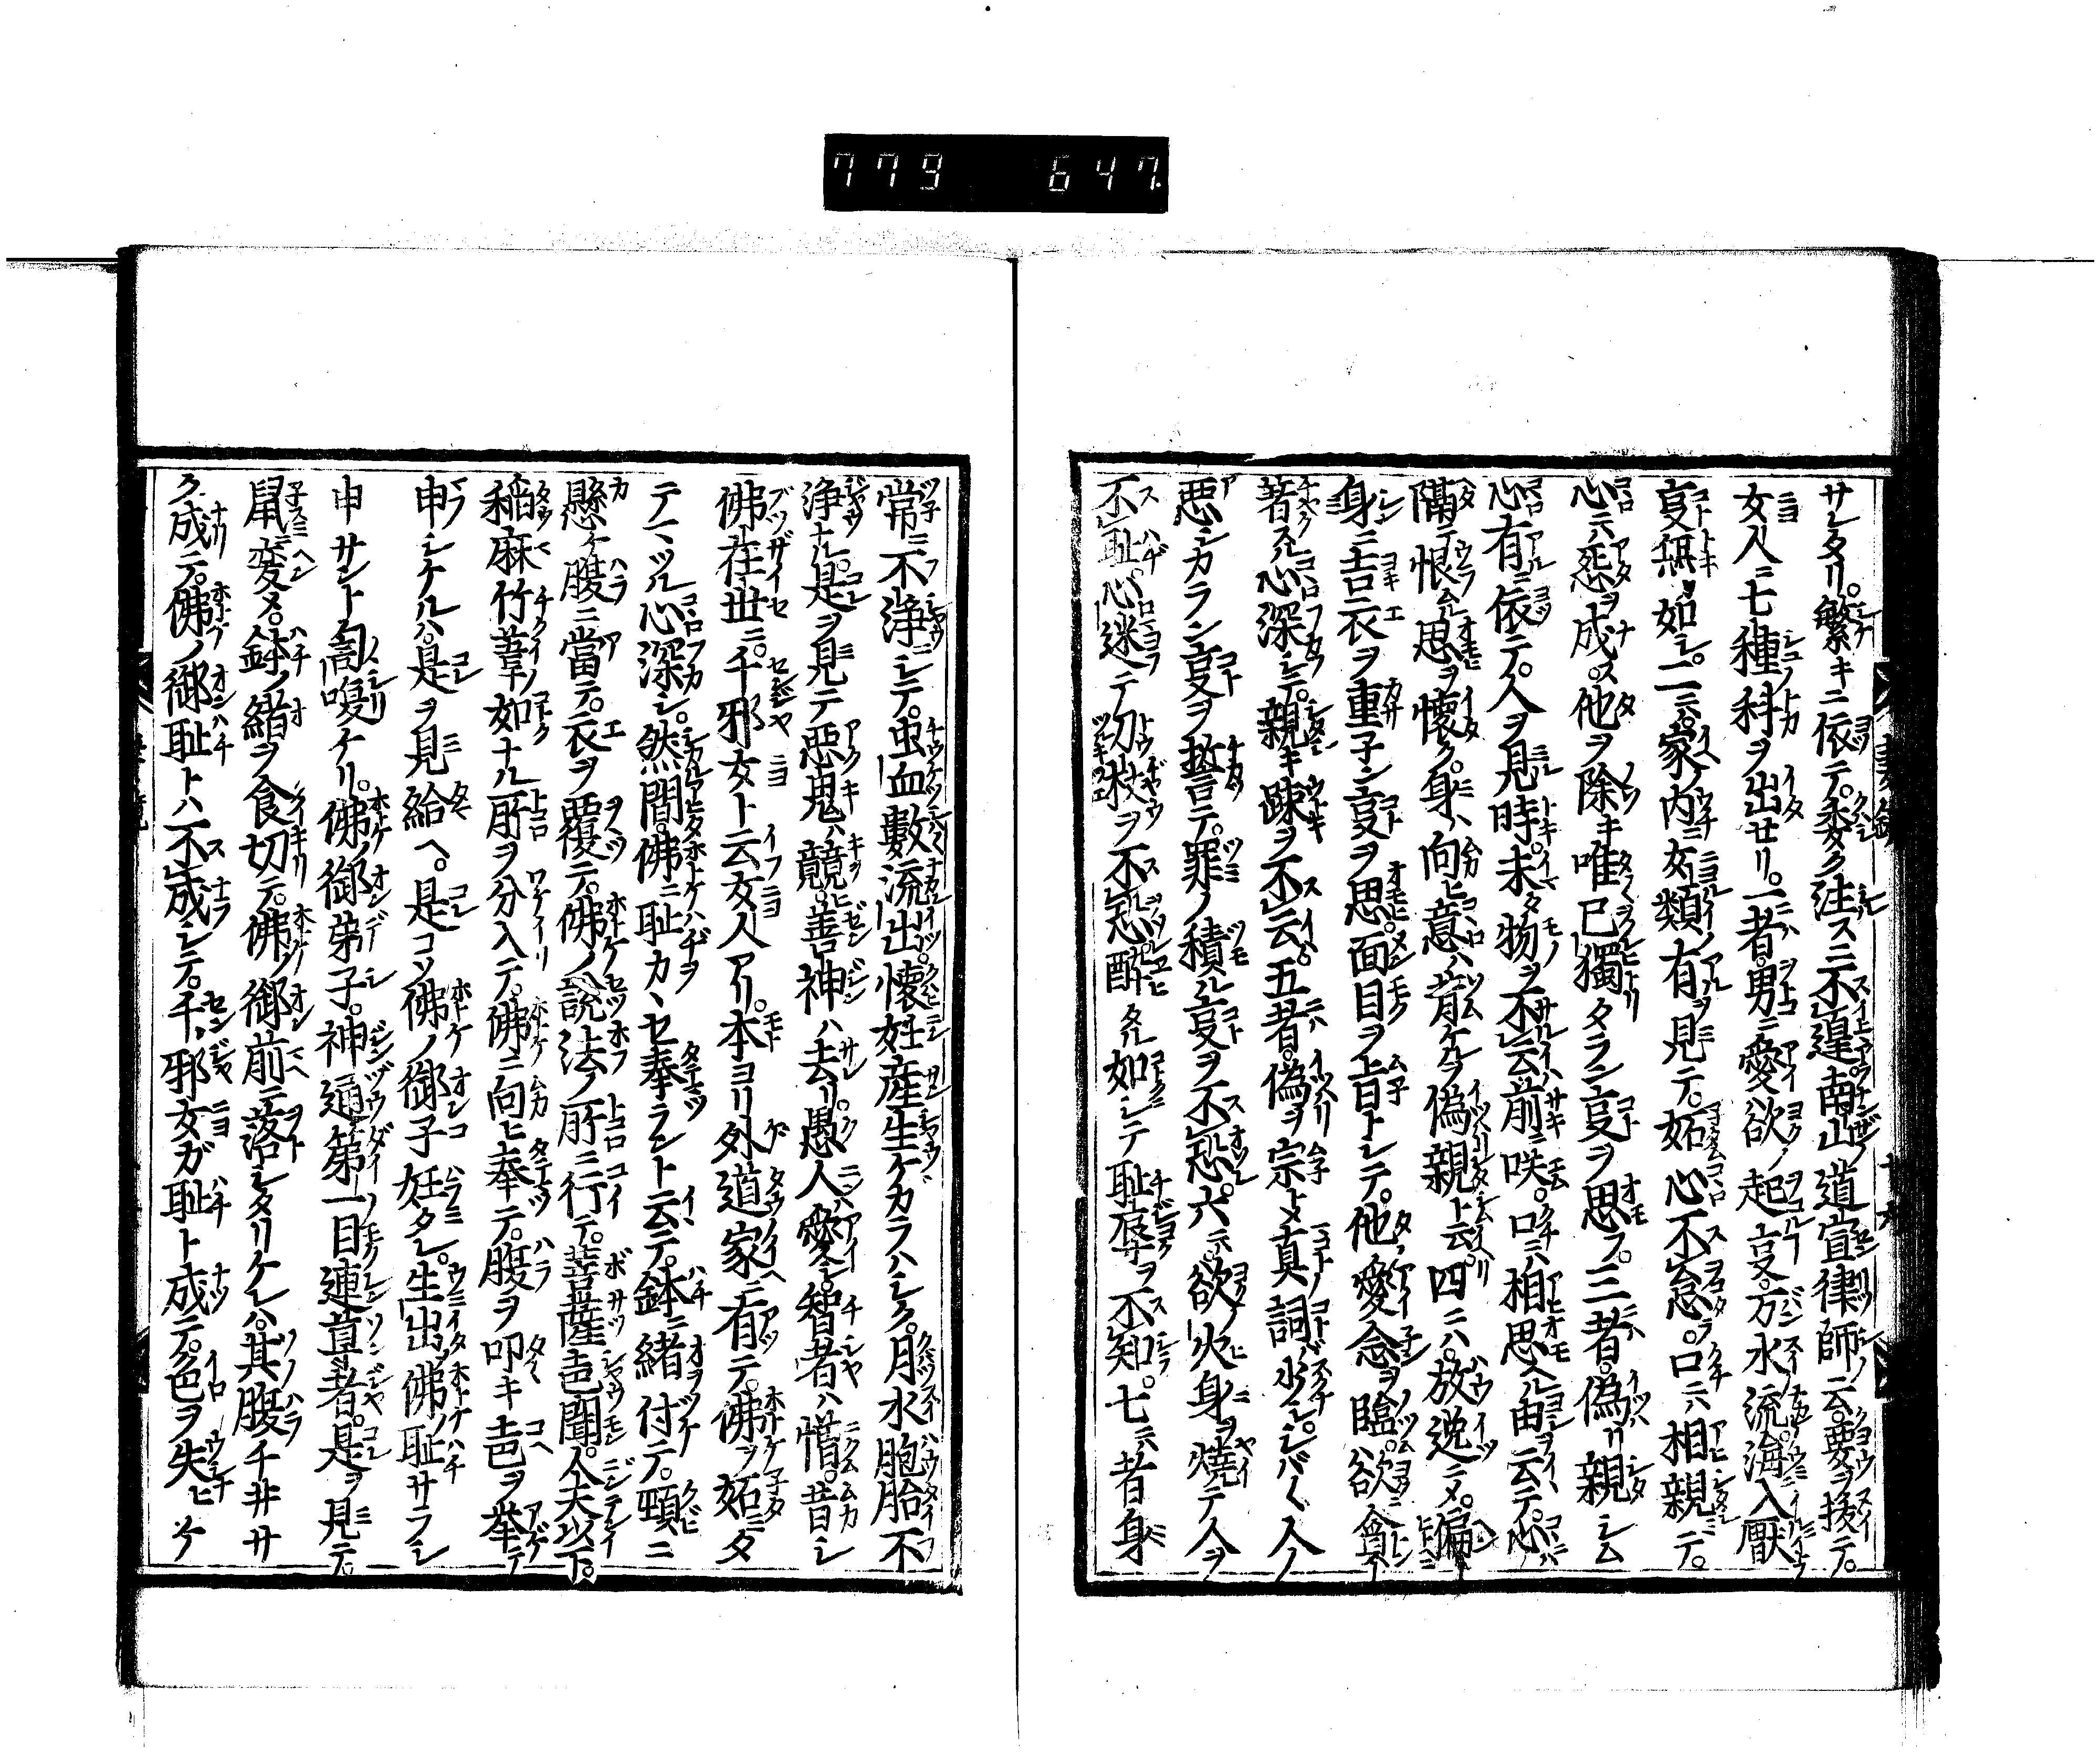 779 647
サレタリ。繁キニ依テ。委ク注スニ不遑南山道宣律師ノ云。要ヲ援テ。
女人ニ七種ノ科ヲ出セリ。一者。男ニ愛欲ノ起ル亊。万水ノ流海ニ入厭
亊無キカ如シ。二ニハ。家ノ内ニ女類ノ有ヲ見テ。妬ム心不怠。口ニハ相親ミテ。
心ニハ怨ヲ成ス。他ヲ除キ唯己獨タラン亊ヲ思フ。三者。偽リ親シム
心有ニ依テ。人ヲ見時。未タ物ヲ不云前ニ咲。口ニハ相思ヘル由ヲ云テ。心ニハ
隔テ恨ムル思ヲ懷ク。身ハ向ヒ意ハ背ケトモ偽親ト云リ。四ニハ。放逸ニ〆。偏ニ
身ニ吉衣ヲ重子ン亊ヲ思ヒ。面目ヲ旨トシテ。他ノ愛念ヲ臨ム。欲ニ食ヒト
著スル心深シテ。親キ疎ヲ不云。五者。偽ヲ宗ト〆真ノ詞ハ少シ。シバ〱人ノ
悪シカラン亊ヲ誓テ。罪ノ積ル亊ヲ不恐。六ニハ。欲ノ火ニ身ヲ燒テ人ヲ
不耻。心迷テ刀杖ヲ不忘。酔タル如シテ耻辱ヲ不知。七ニハ者身
常ニ不淨ニシテ。虫血數流出。懷姙産生ケガラハシク。月水胞胎不
淨ナル。是ヲ見テ悪鬼ハ競ヒ。善神ハ去リ。愚人ハ愛シ。智者ハ憎。昔シ
佛在世ニ。千邪女ト云女人アリ。本ヨリ外道家ニ有テ。佛ヲ妬ミタ
テマツル心深シ。然間。佛ニ耻カヽセ奉ラント云テ。鉢ニ緒付テ。頸ニ
懸ケ腹ニ當テ。衣ヲ覆テ。佛ノ説法ノ所ニ行テ。菩薩声聞。人夫以下。
稲麻竹葦ノ如ナル所ヲ分入テ。佛ニ向ヒ奉テ。腹ヲ叩キ声ヲ挙テ
申シケルハ。是ヲ見給ヘ。是コソ佛ノ御子妊タレ。生出〆佛ノ耻サラシ
申サントノヽシリケリ。佛ノ御弟子。神通第一ノ目連尊者。是ヲ見テ。
鼠ニ変〆。鉢ノ緒ヲ食切テ。佛ノ御前ニ落シタリケレハ。其腹チヰサ
ク成テ。佛ノ御耻トハ不成シテ。千邪女ガ耻ト成テ。色ヲ失ヒケ